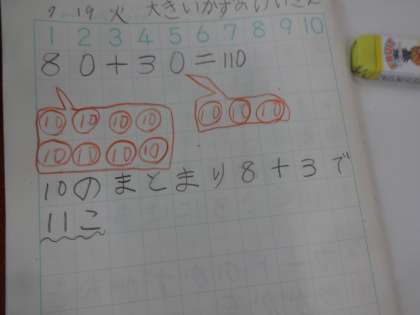 19 火 大きいかずのけいさん
1 2 3 4 5 6 7 8 9 10
80+30=110
10 10 10 10 10 10 10
10 10 10 10
10のまとまり8+3で
11こ